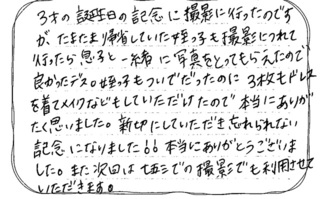 3才の誕生日の記念に撮影に行ったのです
が、たまたま帰省していた姪っ子も撮影につれて
行ったら息子と一緒に写真をとってもらえたので
良かったデス。姪っ子もついでだったのに3枚もドレス
を着てメイクなどもしていただけたので本当にありが
たく思いました。親切にしていただき忘れられない
記念になりました!!本当にありがとうございま
した。また次回は七五三での撮影でも利用させて
いただきます。